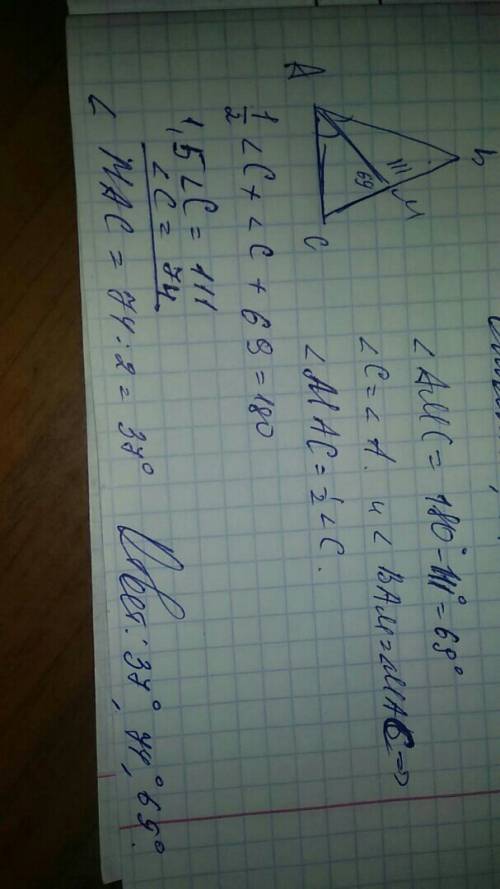 A
B
M
C
111
69
∠AMC = 180° - 111° = 69°
∠C = ∠A. и ∠BAM = MAC ⇒
∠MAC = ½ ∠C.
½ ∠C + ∠C + 69 = 180
1,5 ∠C = 111
∠C = 74
∠MAC = 74 : 2 = 37°
Ответ: 37°, 74°, 69°.